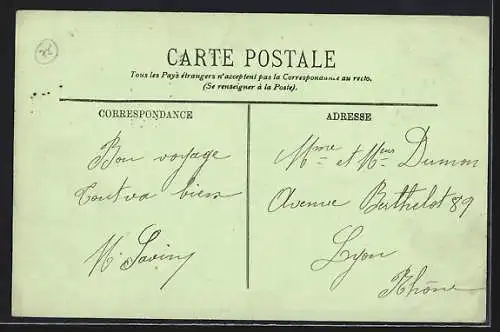 CARTE POSTALE
Tous les Pays étrangers n'acceptent pas la Correspondance au recto.
(Se renseigner à la Poste).
CORRESPONDANCE
ADRESSE
Bon voyage
Tout va bien
Mme et Mr Dumon
Avenue Berthelot 89
Lyon
Rhône